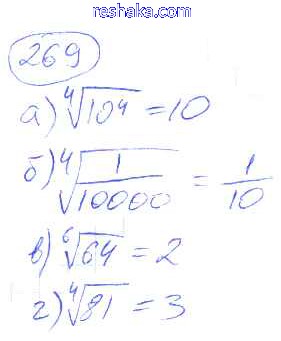 www.reshaka.com
269
а) ⁴√10⁴ = 10
б) ⁴√(1/10000) = 1/10
в) ⁶√64 = 2
г) ⁴√81 = 3